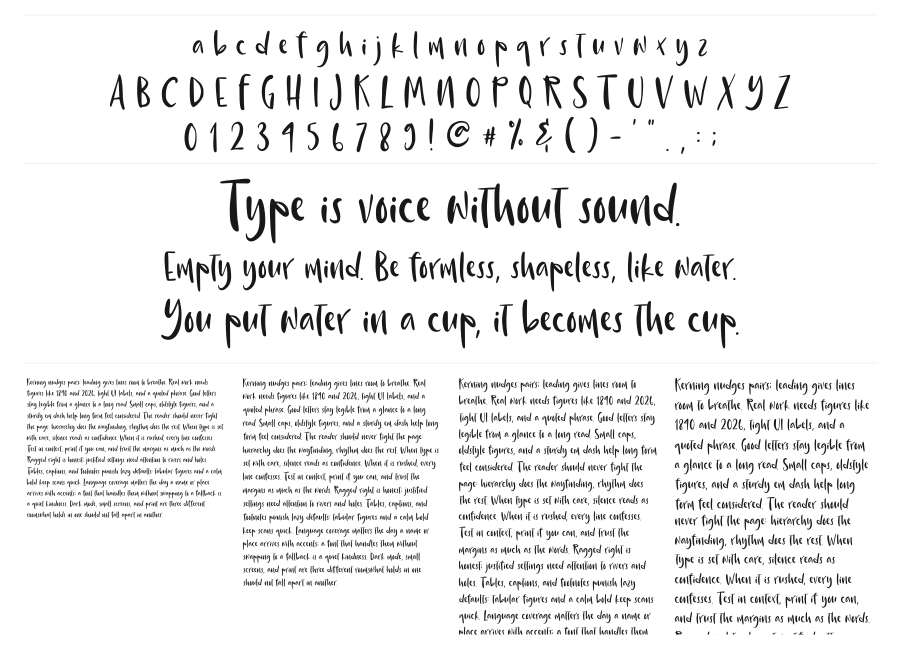 a b c d e f g h i j k l m n o p q r s t u v w x y z
A B C D E F G H I J K L M N O P Q R S T U V W X Y Z
0 1 2 3 4 5 6 7 8 9 ! @ # % & ( ) - ' " . , : ;
Type is voice without sound.
Empty your mind. Be formless, shapeless, like water.
You put water in a cup, it becomes the cup.
Kerning nudges pairs; leading gives lines room to breathe. Real work needs
figures like 1890 and 2026, tight UI labels, and a quoted phrase. Good letters
stay legible from a glance to a long read. Small caps, oldstyle figures, and a
sturdy em dash help long form feel considered. The reader should never fight
the page: hierarchy does the wayfinding, rhythm does the rest. When type is set
with care, silence reads as confidence. When it is rushed, every line confesses.
Test in context, print if you can, and trust the margins as much as the words.
Ragged right is honest; justified settings need attention to rivers and holes.
Tables, captions, and footnotes punish lazy defaults: tabular figures and a calm
bold keep scans quick. Language coverage matters the day a name or place
arrives with accents: a font that handles them without swapping to a fallback is
a quiet kindness. Dark mode, small screens, and print are three different
rooms;what holds in one should not fall apart in another.
Kerning nudges pairs; leading gives lines room to breathe. Real
work needs figures like 1890 and 2026, tight UI labels, and a
quoted phrase. Good letters stay legible from a glance to a long
read. Small caps, oldstyle figures, and a sturdy em dash help long
form feel considered. The reader should never fight the page:
hierarchy does the wayfinding, rhythm does the rest. When type is
set with care, silence reads as confidence. When it is rushed, every
line confesses. Test in context, print if you can, and trust the
margins as much as the words. Ragged right is honest; justified
settings need attention to rivers and holes. Tables, captions, and
footnotes punish lazy defaults: tabular figures and a calm bold
keep scans quick. Language coverage matters the day a name or
place arrives with accents: a font that handles them without
swapping to a fallback is a quiet kindness. Dark mode, small
screens, and print are three different rooms;what holds in one
should not fall apart in another.
Kerning nudges pairs; leading gives lines room to
breathe. Real work needs figures like 1890 and 2026,
tight UI labels, and a quoted phrase. Good letters stay
legible from a glance to a long read. Small caps,
oldstyle figures, and a sturdy em dash help long form
feel considered. The reader should never fight the
page: hierarchy does the wayfinding, rhythm does
the rest. When type is set with care, silence reads as
confidence. When it is rushed, every line confesses.
Test in context, print if you can, and trust the
margins as much as the words. Ragged right is
honest; justified settings need attention to rivers and
holes. Tables, captions, and footnotes punish lazy
defaults: tabular figures and a calm bold keep scans
quick. Language coverage matters the day a name or
place arrives with accents: a font that handles them
Kerning nudges pairs; leading gives lines
room to breathe. Real work needs figures like
1890 and 2026, tight UI labels, and a
quoted phrase. Good letters stay legible from
a glance to a long read. Small caps, oldstyle
figures, and a sturdy em dash help long
form feel considered. The reader should
never fight the page: hierarchy does the
wayfinding, rhythm does the rest. When
type is set with care, silence reads as
confidence. When it is rushed, every line
confesses. Test in context, print if you can,
and trust the margins as much as the words.